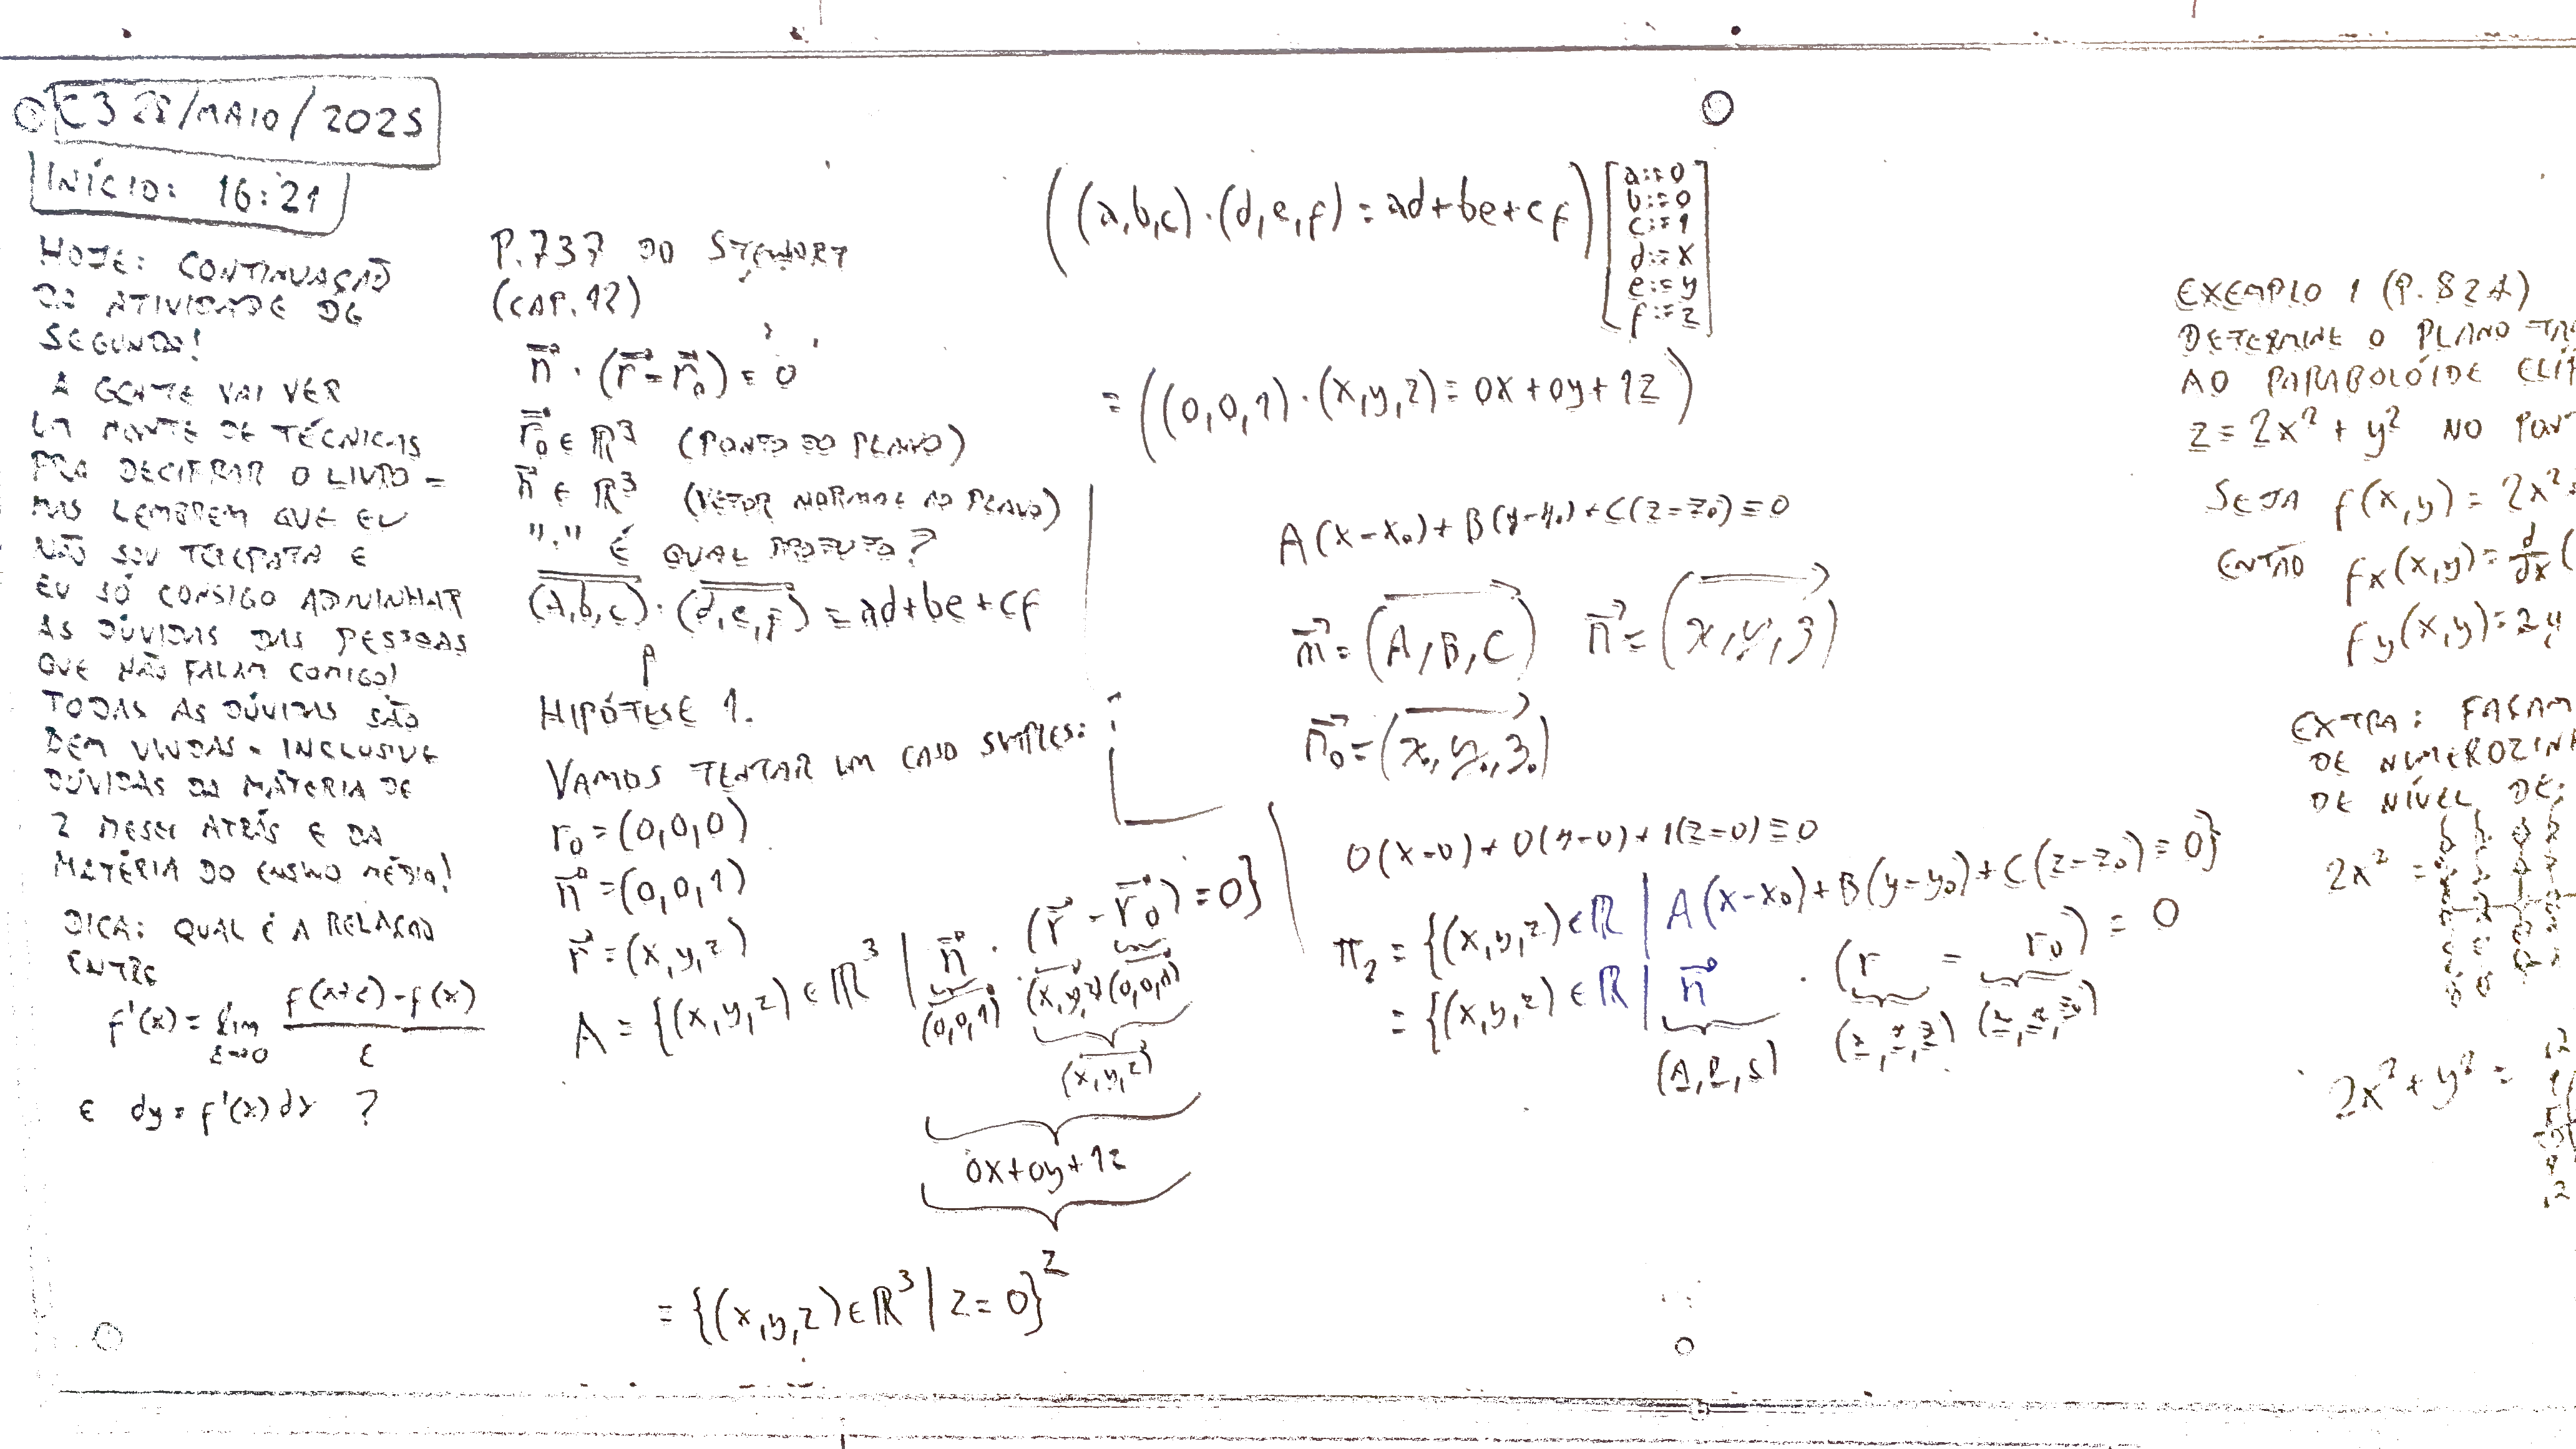 C3 28/MAIO/2025
INÍCIO: 16:21
HOJE: CONTINUAÇÃO
DA ATIVIDADE DE
SEGUNDA!
A GENTE VAI VER
UM MONTE DE TÉCNICAS
PRA DECIFRAR O LIVRO –
MAS LEMBREM QUE EU
NÃO SOU TELEPATA E
EU SÓ CONSIGO ADIVINHAR
AS DÚVIDAS DAS PESSOAS
QUE NÃO FALAM COMIGO!
TODAS AS DÚVIDAS SÃO
BEM VINDAS – INCLUSIVE
DÚVIDAS DA MATÉRIA DE
2 MESES ATRÁS E DA
MATÉRIA DO ENSINO MÉDIO!
DICA: QUAL É A RELAÇÃO
ENTRE
f'(x) = lim ε→0 (f(x+ε) - f(x)) / ε
E dy = f'(x) dx ?
P.737 DO STEWART
(CAP.12)
n⃗ · (r⃗ - r⃗₀) = 0
r⃗₀ ∈ ℝ³ (PONTO DO PLANO)
n⃗ ∈ ℝ³ (VETOR NORMAL AO PLANO)
"·" É QUAL PRODUTO?
(a,b,c) · (d,e,f) = ad+be+cf
HIPÓTESE 1.
VAMOS TENTAR UM CASO SIMPLES:
r₀ = (0,0,0)
n⃗ = (0,0,1)
r⃗ = (x,y,z)
A = {(x,y,z) ∈ ℝ³ | n⃗ · (r⃗ - r⃗₀) = 0}
(0,0,1) (x,y,z) (0,0,0)
(x,y,z)
0x+0y+1z
z
= {(x,y,z) ∈ ℝ³ | z = 0}
((a,b,c)·(d,e,f) = ad+be+cf) [a:=0
b:=0
c:=1
d:=x
e:=y
f:=z]
= ((0,0,1)·(x,y,z) = 0x+0y+1z)
A(x-x₀) + B(y-y₀) + C(z-z₀) = 0
m⃗ = (A,B,C) n⃗ = (x,y,z)
n⃗₀ = (x₀,y₀,z₀)
0(x-0) + 0(y-0) + 1(z-0) = 0
π₂ = {(x,y,z) ∈ ℝ | A(x-x₀) + B(y-y₀) + C(z-z₀) = 0}
= {(x,y,z) ∈ ℝ | n⃗ · (r - r₀) = 0
EXEMPLO 1 (P.824)
DETERMINE O PLANO
AO PARABOLÓIDE
z = 2x² + y² NO
SEJA f(x,y) = 2x²
ENTÃO fx(x,y) = d/dx (
fy(x,y) = 2y
EXTRA: FAÇAM
DE
DE NÍVEL DE:
2x² =
2x² + y² =